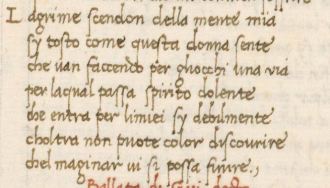 Lagrime scendon della mente mia
sy tosto come questa donna sente
che van faccendo per gliocchi una via
per laqual passa spirito dolente
che entra per limiei sy debilmente
choltra non puote color discourire
chel maginar vi si possa finire.,
Ballata di